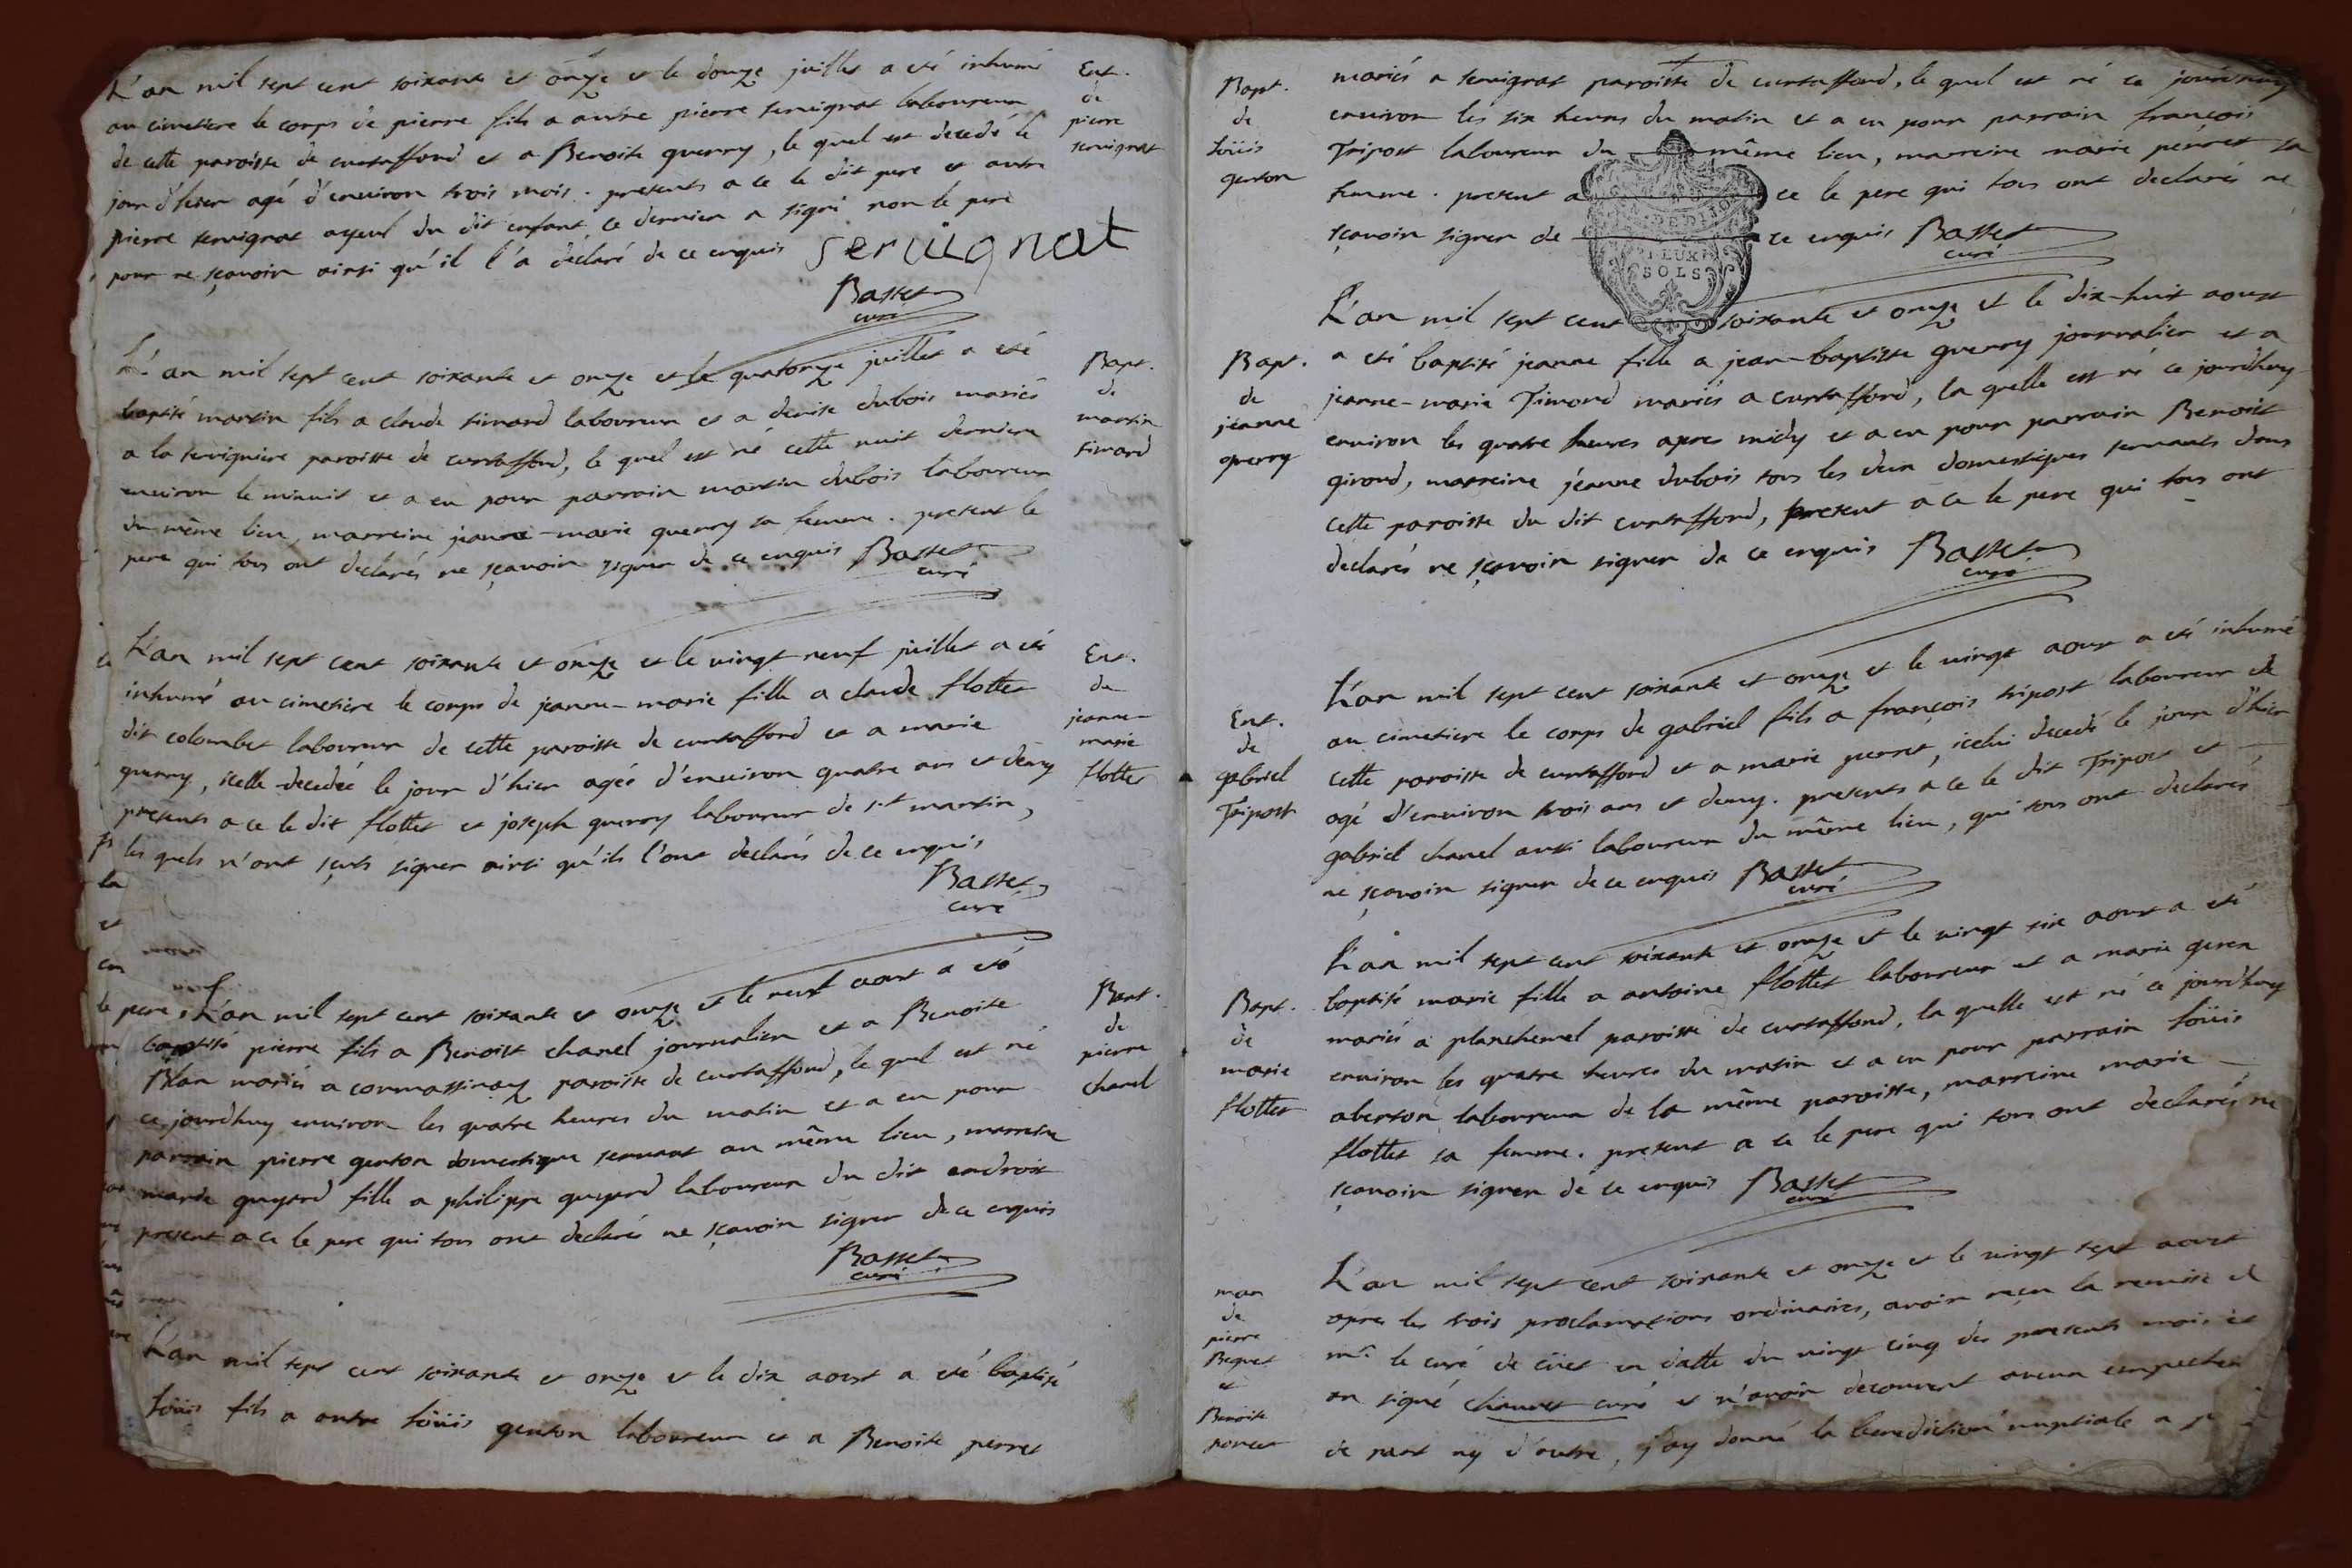 L'an mil sept cent soixante et onze et le douze juillet a eté inhumé
au cimetiere le corps de pierre fils a autre pierre servignat laboureur
de cette paroisse de curtaffond et a Benoite guerry, le quel est decedé le
jour d'hier agé d'environ trois mois. presents a ce le dit pere et autre
pierre servignat ayeul du dit enfant, ce dernier a signé non le pere
pour ne sçavoir ainsi qu'il l'a déclaré de ce enquis servignat
Basset
curé
Ent.
de
pierre
servignat
L'an mil sept cent soixante et onze et le quatorze juillet a eté
baptisé martin fils a claude timard laboureur et a denise dubois mariés
a la servigniere paroisse de curtaffond, le quel est né cette nuit derniere
environ le minuit et a eu pour parrain martin dubois laboureur
du même lieu, marreine jeanne-marie guerry sa femme. present le
pere qui tous ont declarés ne sçavoir signer de ce enquis Basset
curé
Bapt.
de
martin
timard
L'an mil sept cent soixante et onze et le vingt neuf juillet a eté
inhumé au cimetiere le corps de jeanne-marie fille a claude flottet
dit colombet laboureur de cette paroisse de curtaffond et a marie
guerry, icelle decedée le jour d'hier agée d'environ quatre ans et demy
presents a ce le dit flottet et joseph guerry laboureur de st martin,
les quels n'ont sçuts signer ainsi qu'ils l'ont declarés de ce enquis
Basset
curé
Ent.
de
jeanne-
marie
flottet
L'an mil sept cent soixante et onze et le neuf aout a eté
baptisé pierre fils a Benoist chanel journalier et a Benoite
Blan mariés a cormassinay paroisse de curtaffond, le quel est né
ce jourdhuy environ les quatre heures du matin et a eu pour
parrain pierre genton domestique servant au même lieu, marreine
marie guyard fille a philippe guyard laboureur du dit endroit
present a ce le pere qui tous ont declarés ne sçavoir signer de ce enquis
Basset
curé
Bapt.
de
pierre
chanel
L'an mil sept cent soixante et onze et le dix aoust a eté baptisé
loüis fils a autre loüis genton laboureur et a Benoite perret
Bapt.
de
loüis
genton
mariés a servignat paroisse de curtaffond, le quel est né ce jourdhuy
environ les six heures du matin et a eu pour parrain françois
Tripost laboureur du même lieu, marreine marie perret sa
femme. present a ce le pere qui tous ont declarés ne
sçavoir signer de ce enquis Basset
curé
SOLS
L'an mil sept cent soixante et onze et le dix-huit aoust
a eté baptisé jeanne fille a jean-baptiste guerry journalier et a
jeanne-marie Timond mariés a curtaffond, la quelle est né ce jourdhuy
environ les quatre heures apres midy et a eu pour parrain Benoist
girond, marreine jéanne dubois tous les deux domestiques servants dans
cette paroisse du dit curtaffond, present a ce le pere qui tous ont
declarés ne sçavoir signer de ce enquis Basset
curé
Bapt.
de
jeanne
guerry
L'an mil sept cent soixante et onze et le vingt aoust a eté inhumé
au cimetiere le corps de gabriel fils a françois tripost laboureur de
cette paroisse de curtaffond et a marie perret, icelui decedé le jour d'hier
agé d'environ trois ans et demy. presents a ce le dit Tripost et
gabriel chanel aussi laboureur du même lieu, qui tous ont declarés
ne sçavoir signer de ce enquis Basset
curé
Ent.
de
gabriel
Tripost
L'an mil sept cent soixante et onze et le vingt six aoust a eté
baptisé marie fille a antoine flottet laboureur et a marie geren
mariés a planchemel paroisse de curtaffond, la quelle est né ce jourdhuy
environ les quatre heures du matin et a eu pour parrain loüis
aberton laboureur de la même paroisse, marreine marie
flottet sa femme. present a ce le pere qui tous ont declarés ne
sçavoir signer de ce enquis Basset
curé
Bapt.
de
marie
flottet
L'an mil sept cent soixante et onze et le vingt sept aoust
apres les trois proclamations ordinaires, avoir reçu la remise de
mr. le curé de cüet en datte du vingt cinq des presents mois et
an signé chanet curé et n'avoir decouvert aucun empechement
de part ny d'autre, j'ay donné la benediction nuptiale a
mar
de
pierre
Beguet
et
Benoite
poncet